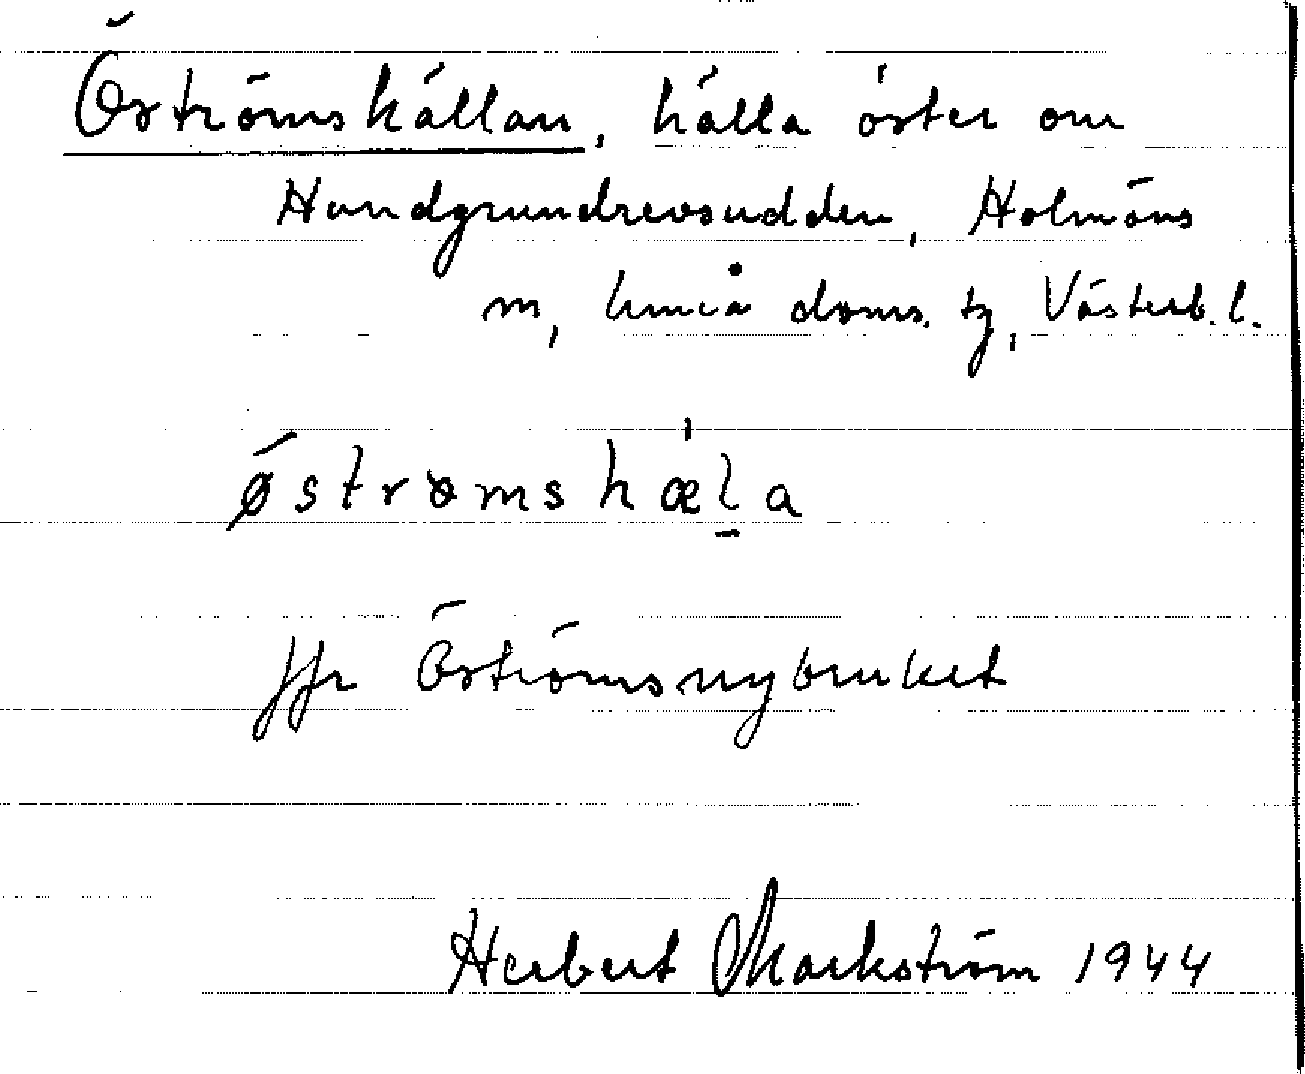 Öströmshällan, hälla öster om
Hundgrundrevsudden, Holmöns
m, Umeå doms. tg, Västerb. l.
ø̄strømshæ̍l̠a
Jfr Öströmsnybruket
Herbert Markström 1944